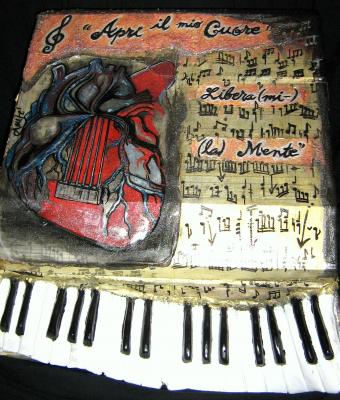 "Apri il mio Cuore"
Libera (mi-)
(la) Mente"